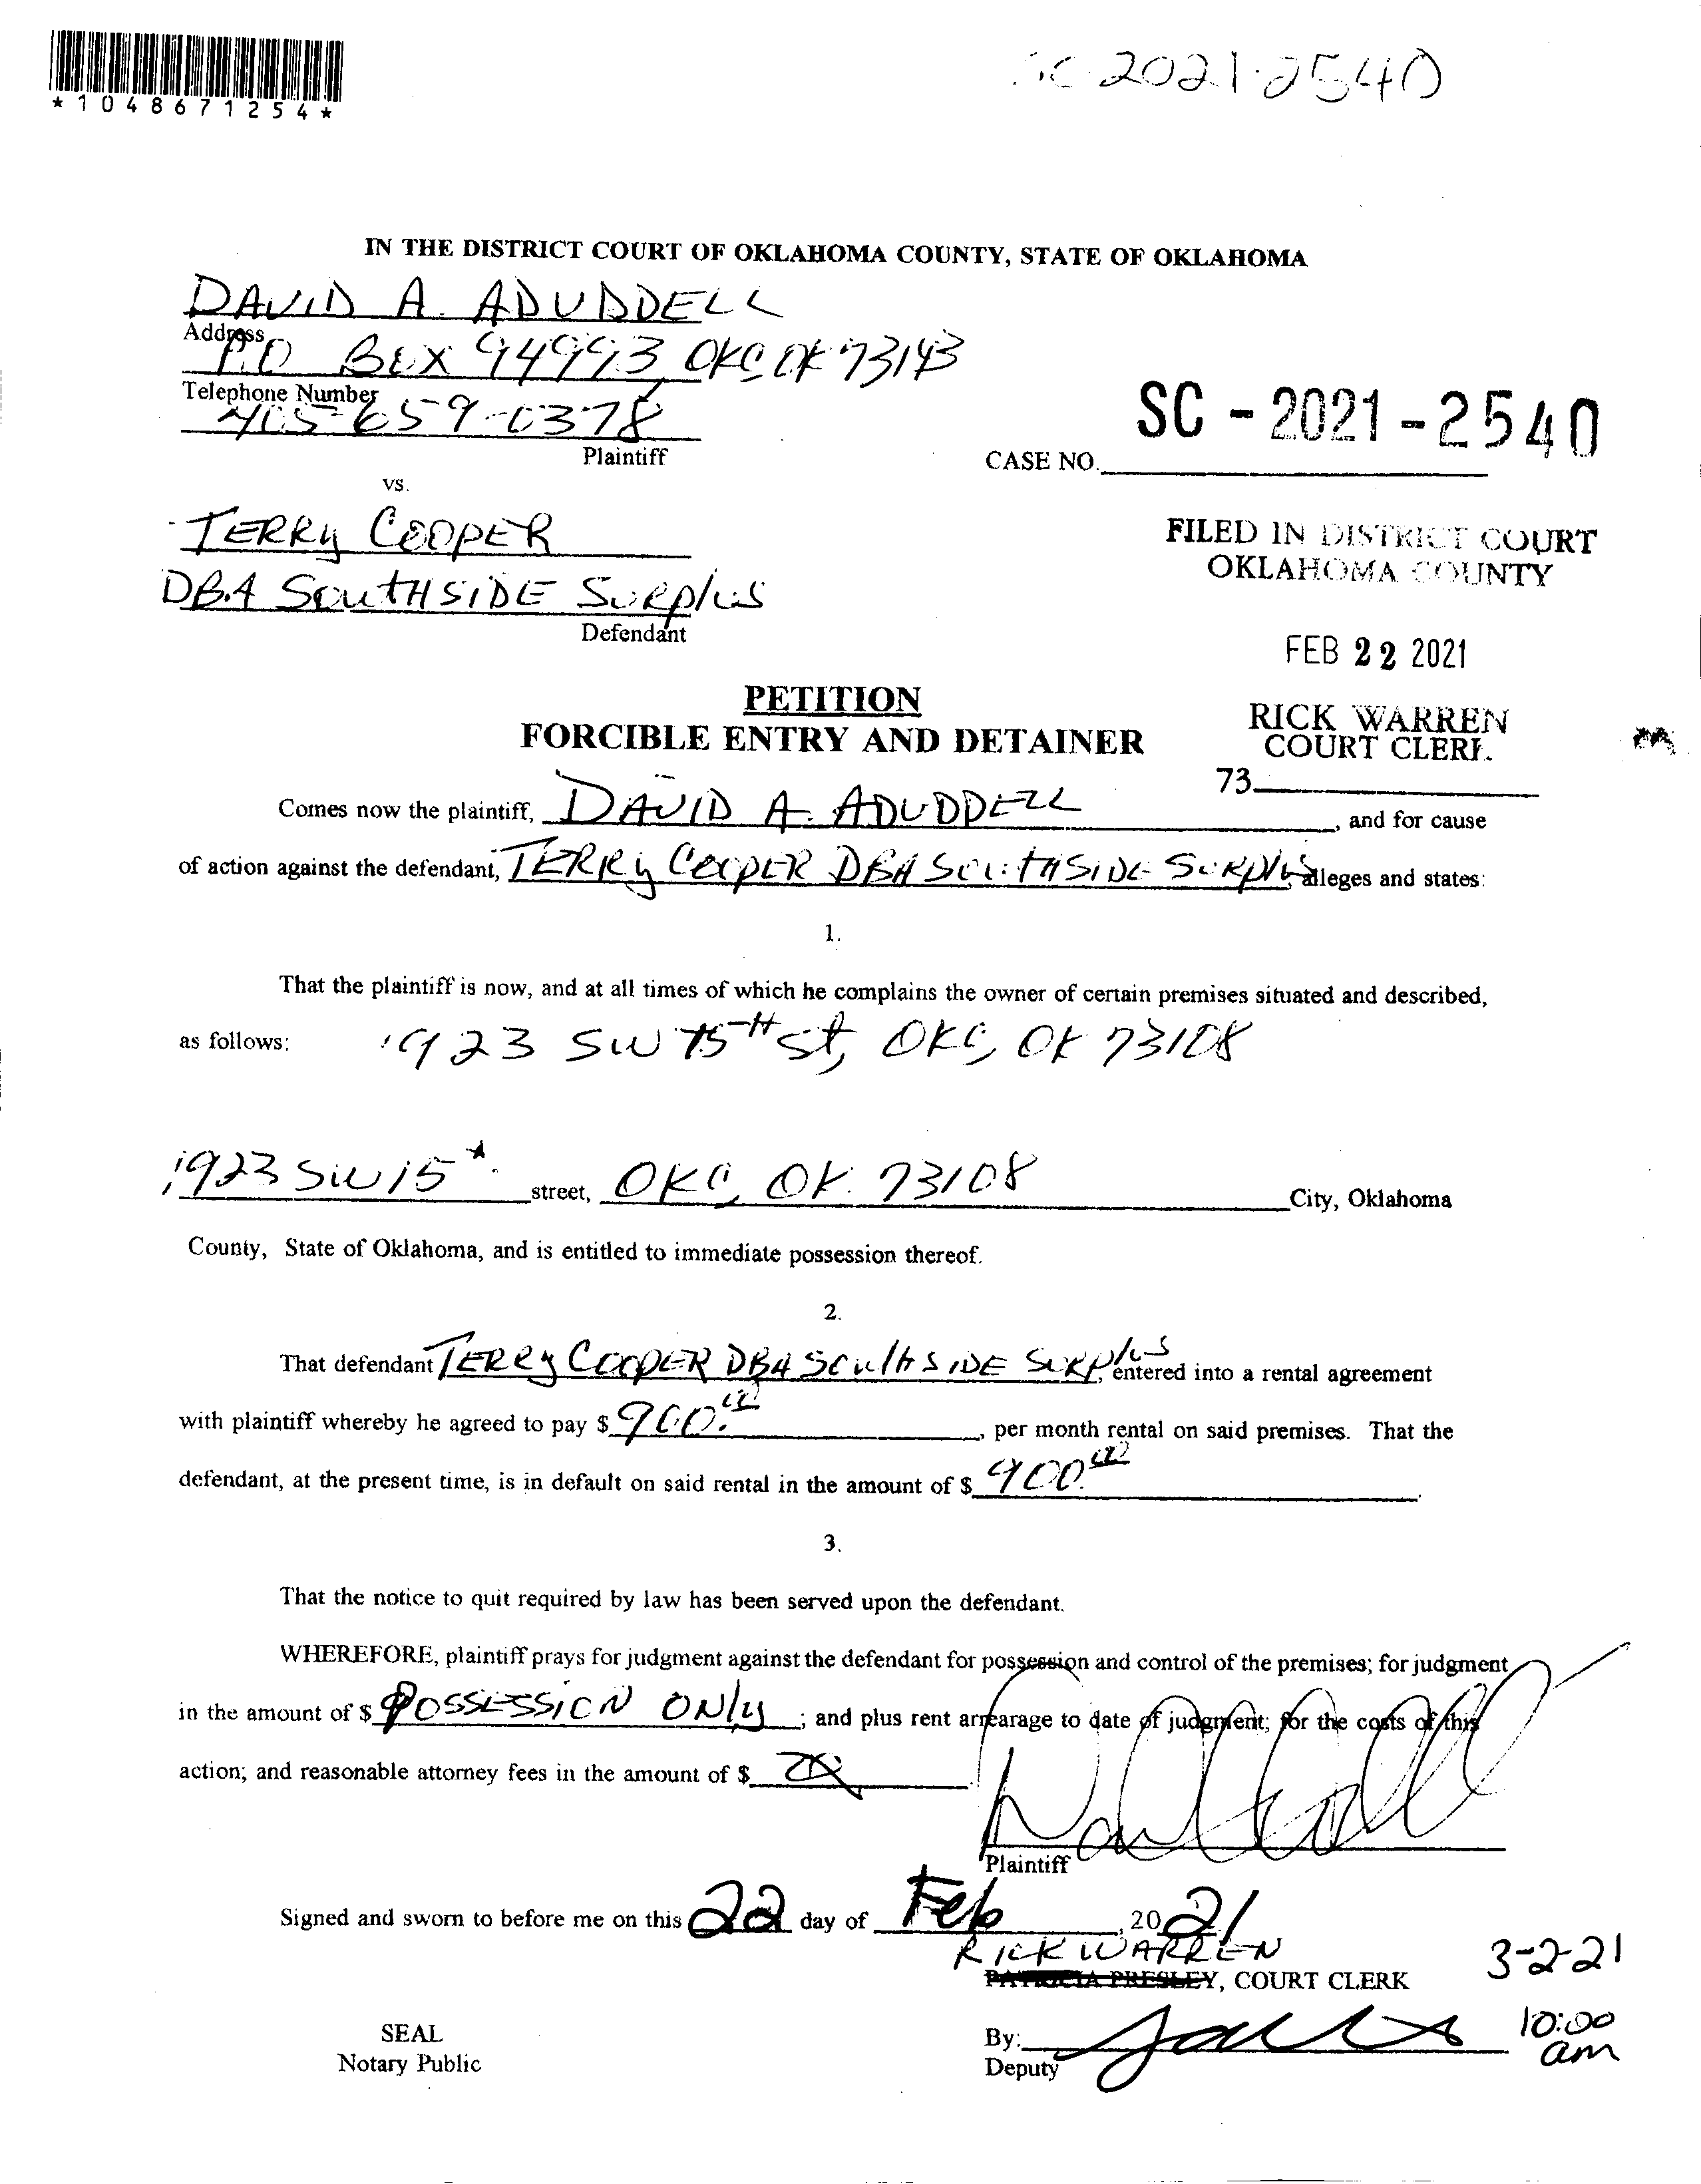 *1048671254*
SC-2021-2540
IN THE DISTRICT COURT OF OKLAHOMA COUNTY, STATE OF OKLAHOMA
DAVID A. ADUDDELL
Address
P.O BOX 94993, OKC, OK 73143
Telephone Number
405-659-0378
Plaintiff
SC - 2021 - 2540
CASE NO.
vs.
TERRY COOPER
DBA SOUTHSIDE SURPLUS
Defendant
FILED IN DISTRICT COURT
OKLAHOMA COUNTY
FEB 22 2021
PETITION
FORCIBLE ENTRY AND DETAINER
RICK WARREN
COURT CLERK
73
Comes now the plaintiff, DAVID A. ADUDDELL, and for cause
of action against the defendant, TERRY COOPER DBA SOUTHSIDE SURPLUS, alleges and states:
1.
That the plaintiff is now, and at all times of which he complains the owner of certain premises situated and described,
as follows: 1923 SW 15TH St, OKC, OK 73108
1923 SW 15 street, OKC, OK. 73108 City, Oklahoma
County, State of Oklahoma, and is entitled to immediate possession thereof.
2.
That defendant TERRY COOPER DBA SOUTHSIDE SURPLUS, entered into a rental agreement
with plaintiff whereby he agreed to pay $ 900.00, per month rental on said premises. That the
defendant, at the present time, is in default on said rental in the amount of $ 900.00.
3.
That the notice to quit required by law has been served upon the defendant.
WHEREFORE, plaintiff prays for judgment against the defendant for possession and control of the premises; for judgment
in the amount of $ POSSESSION ONLY; and plus rent arrearage to date of judgment; for the costs of this
action; and reasonable attorney fees in the amount of $
Plaintiff
Signed and sworn to before me on this 22 day of Feb, 20 21
RICK WARREN
PATRICIA PRESLEY, COURT CLERK
3-2-21
10:00
am
SEAL
Notary Public
By:
Deputy